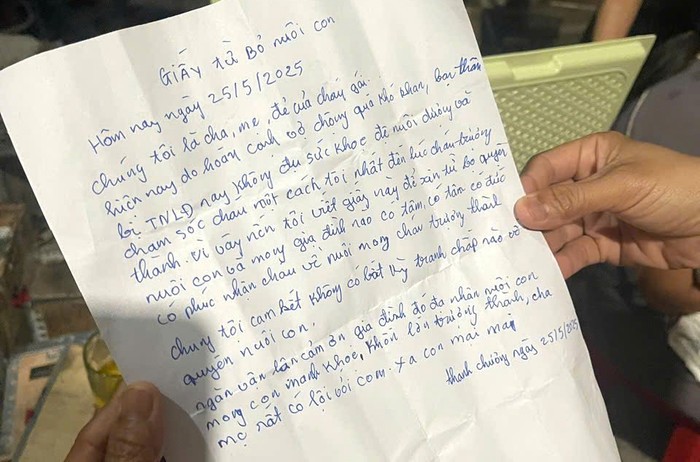 GIẤY từ BỎ nuôi con
Hôm nay ngày 25/5/2025
chúng tôi là cha, mẹ, đẻ của cháu gái.
hiện nay do hoàn cảnh vợ chồng quá khó khăn, bạn thân
bị TNLĐ nay không đủ sức khoẻ để nuôi dưỡng và
chăm sóc cháu một cách tôi nhất đến lúc cháu trưởng
thành. vì vậy nên tôi viết giấy này để xin từ bỏ quyền
nuôi con và mong gia đình nào có tâm, có tầm có đức
có phúc nhận cháu về nuôi mong cháu trưởng thành
chúng tôi cam kết không có bất kỳ tranh chấp nào về
quyền nuôi con.
ngàn vân lân cảm ơn gia đình đó đã nhận nuôi con
mong con mạnh khoẻ, khôn lớn trưởng thành, cha
mẹ rất có lỗi với con. xa con mãi mãi
thanh chương ngày 25/5/2025